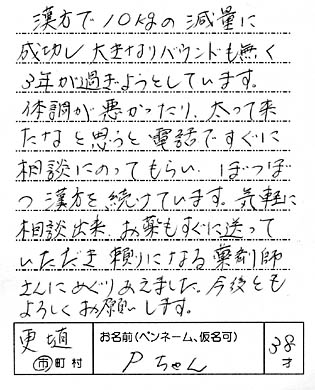 漢方で10kgの減量に
成功し大きなリバウンドも無く
3年が過ぎようとしています。
体調が悪かったり、太って来
たなと思うと電話ですぐに
相談にのってもらい、ぼつぼ
つ漢方を続けています。気軽に
相談出来、お薬もすぐに送って
いただき頼りになる薬剤師
さんにめぐりあえました。今後とも
よろしくお願いします。
更埴
市町村
お名前(ペンネーム、仮名可)
Pちゃん
38
才